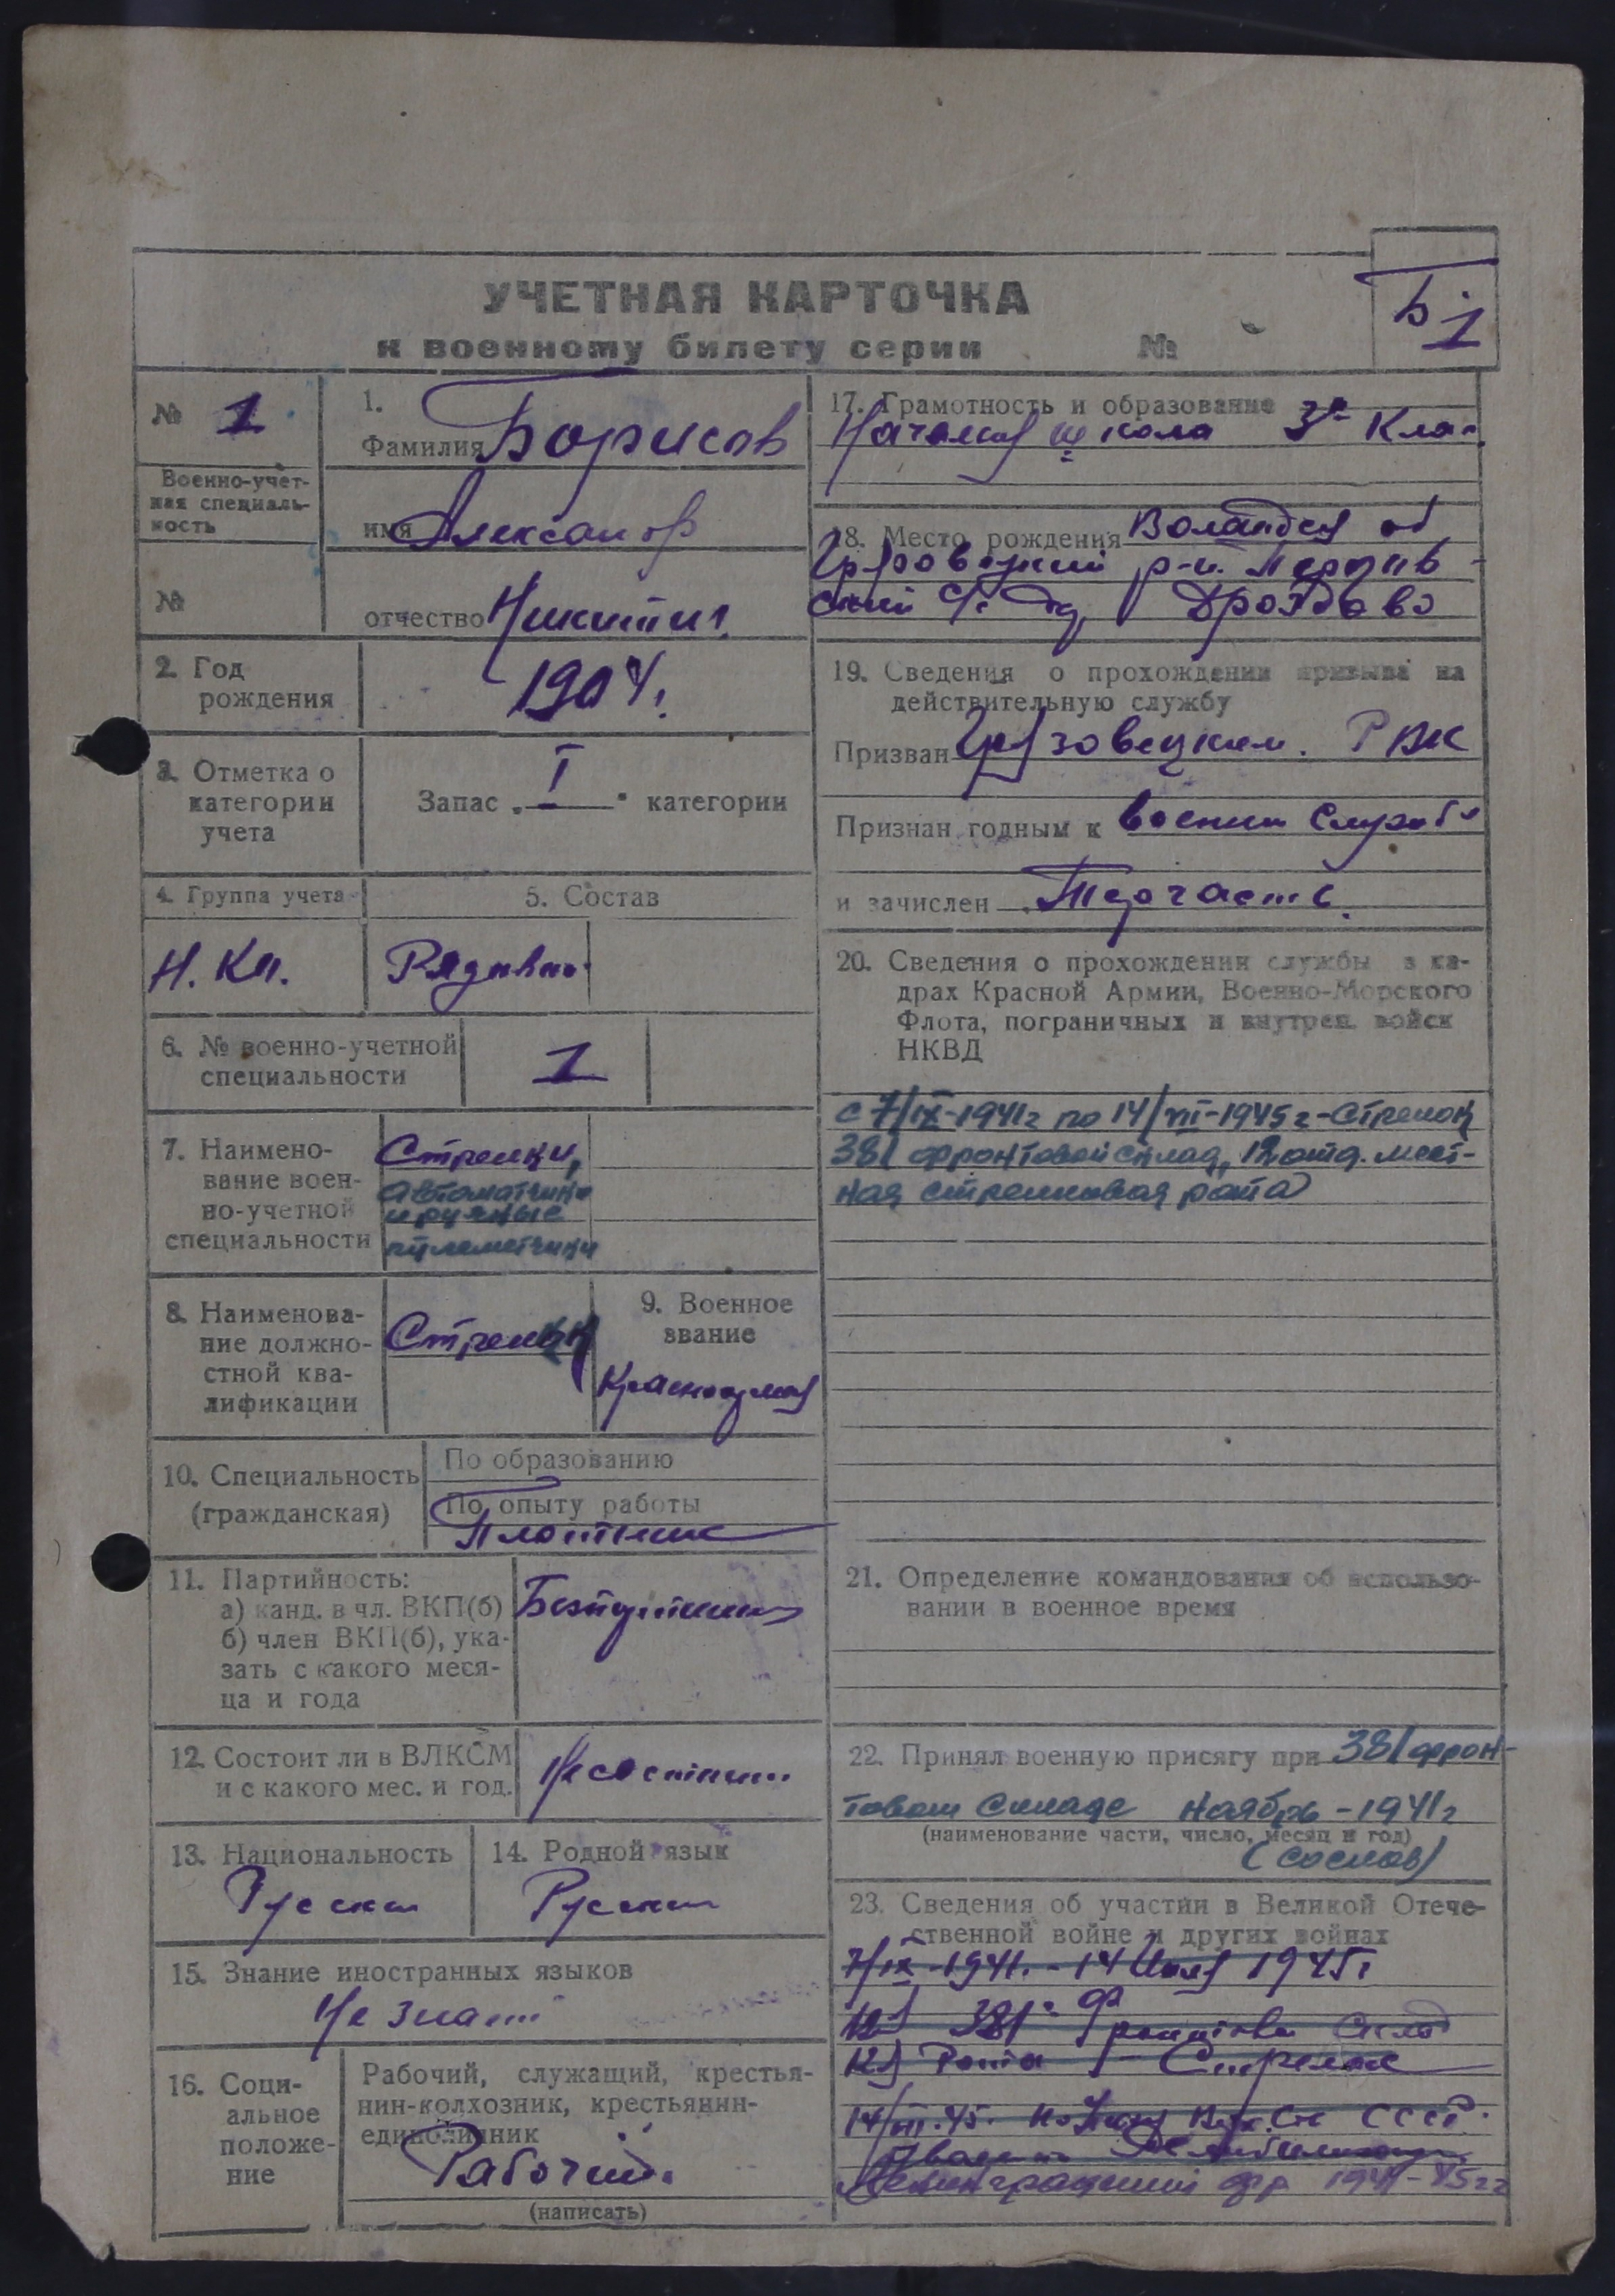 Б-1
УЧЕТНАЯ КАРТОЧКА
к военному билету серии №
№ 1
Военно-учет-
ная специаль-
ность
№
1.
Фамилия Борисов
имя Александр
отчество Никитич
2. Год
рождения
1904 г.
3. Отметка о
категории
учета
Запас „I" категории
4. Группа учета
Н. Кп.
5. Состав
Рядовой
6. № военно-учетной
специальности
1
7. Наимено-
вание воен-
но-учетной
специальности
Стрелки,
автоматчики
и ручные
пулеметчики
8. Наименова-
ние должно-
стной ква-
лификации
Стрелок
9. Военное
звание
Красноармеец
10. Специальность
(гражданская)
По образованию
По опыту работы
Плотник
11. Партийность:
а) канд. в чл. ВКП(б)
б) член ВКП(б), ука-
зать с какого меся-
ца и года
12. Состоит ли в ВЛКСМ
и с какого мес. и год.
13. Национальность
Русский
14. Родной язык
Русский
15. Знание иностранных языков
Не знает
16. Соци-
альное
положе-
ние
Рабочий, служащий, крестья-
нин-колхозник, крестьянин-
единоличник
Рабочий.
(написать)
17. Грамотность и образование 3й
школа Клас.
18. Место рождения
р-н.
с/с д Дроздово
19. Сведения о прохождении призыва на
действительную службу
Призван Грязовецким РВК
Признан годным к военной службе
и зачислен Терчасть.
20. Сведения о прохождении службы в ка-
драх Красной Армии, Военно-Морского
Флота, пограничных и внутрен. войск
НКВД
с 7/IX-1941г по 14/VII-1945г-стрелок
381 фронтовой склад, 12 отд. мест-
ная стрелковая рота
21. Определение командования об использо-
вании в военное время
22. Принял военную присягу при 381 фрон-
товом складе ноябрь-1941г
(наименование части, число, месяц и год)
(со слов)
23. Сведения об участии в Великой Отече-
ственной войне и других войнах
7/IX-1941. - 14 1945г
381 Склад
12 Рота - Стрелок
14/VII.45. СССР.
Ленинградский фр 1941-45гг